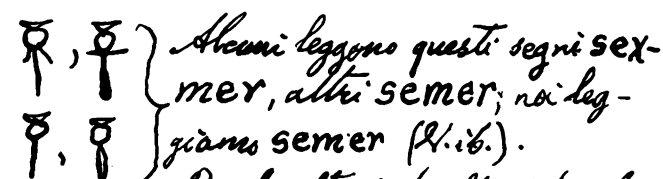 Alcuni leggono questi segni sex-
mer, altri semer; noi leg-
giamo semer (V. ib.).